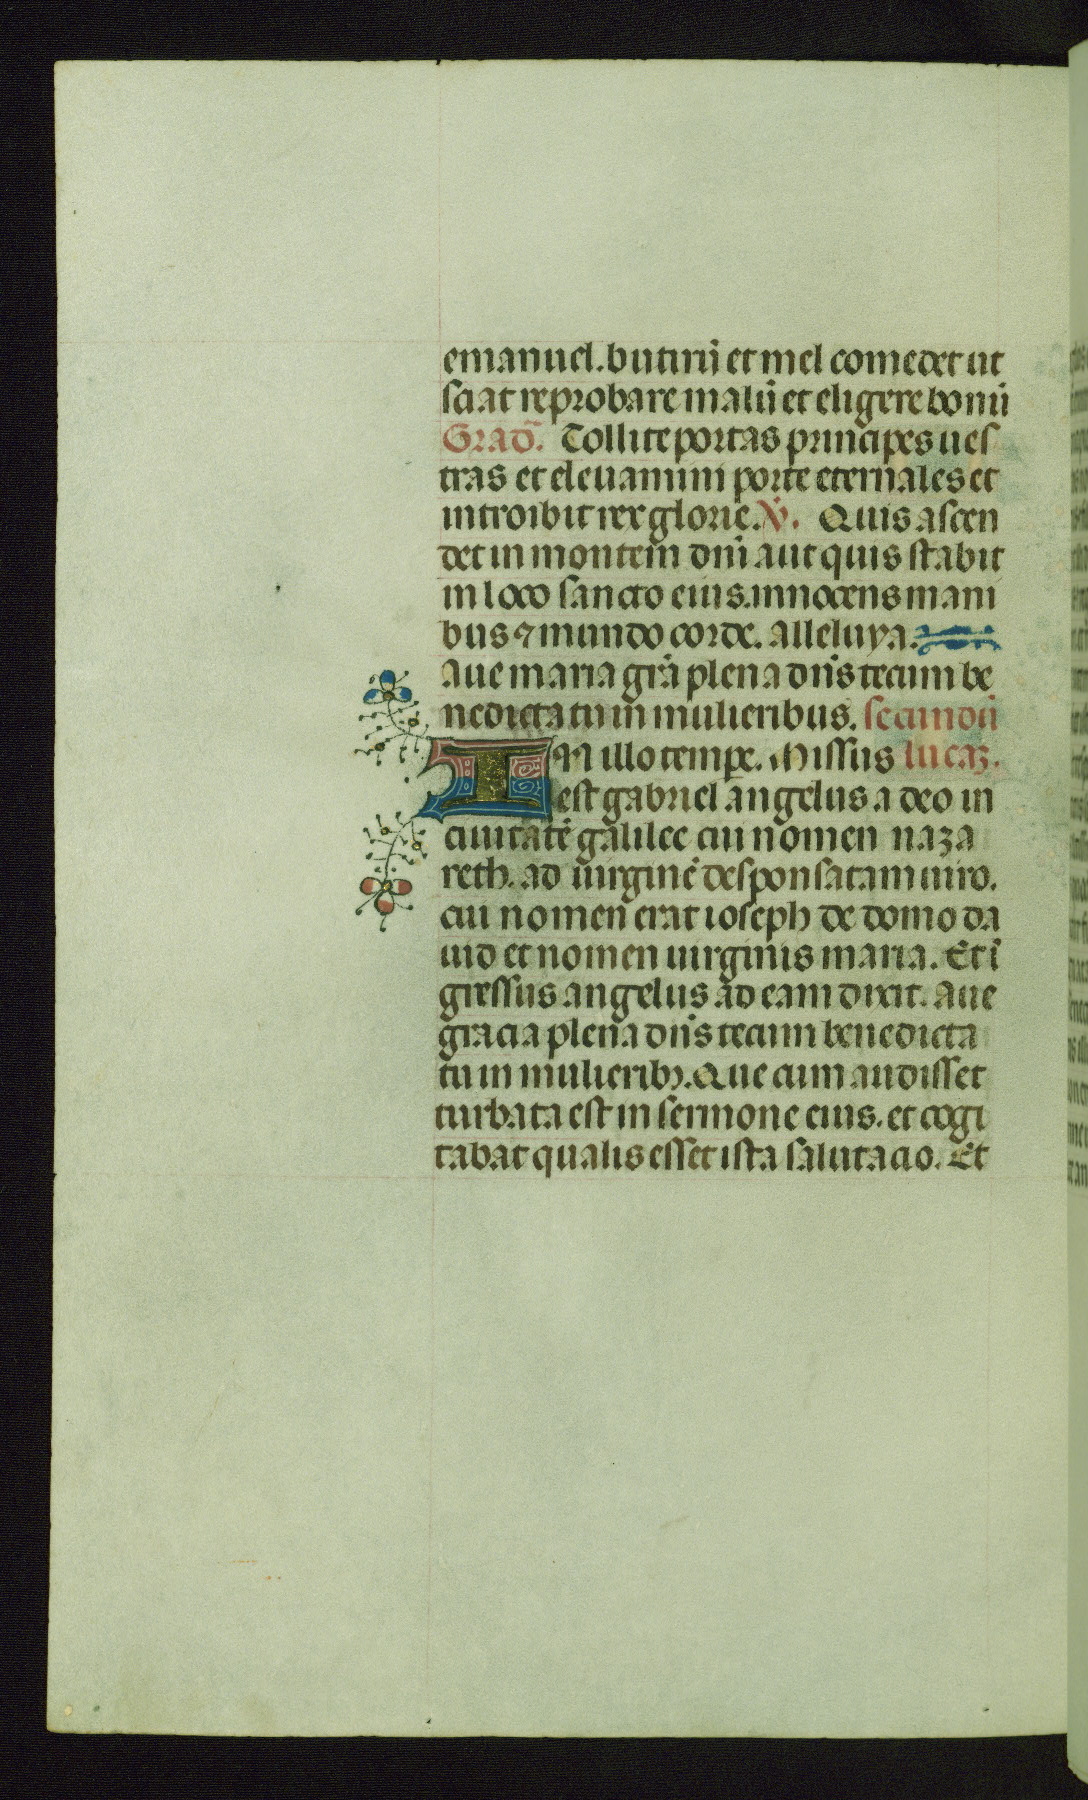 emanuel. butirū et mel comedet ut
sciat reprobare malū et eligere bonū
Grad̄. Tollite portas principes ues
tras et eleuamini porte eternales et
introibit rex glorie. V̇. Quis ascen
det in montem dnī aut quis stabit
in loco sancto eius. innocens mani
bus ⁊ mundo corde. alleluya.
Aue maria grā plena dn̄s tecum be
nedicta tu in mulieribus. secundū
IN illo tempe. Missus lucaʒ.
est gabriel angelus a deo in
ciuitatē galilee cui nomen naza
reth. ad uirginē desponsatam uiro.
cui nomen erat ioseph de domo da
uid et nomen uirginis maria. Et ī
gressus angelus ad eam dixit. Aue
gracia plena dn̄s tecum benedicta
tu in mulieribꝫ. Que cum audisset
turbata est in sermone eius. et cogi
tabat qualis esset ista salutacio. Et